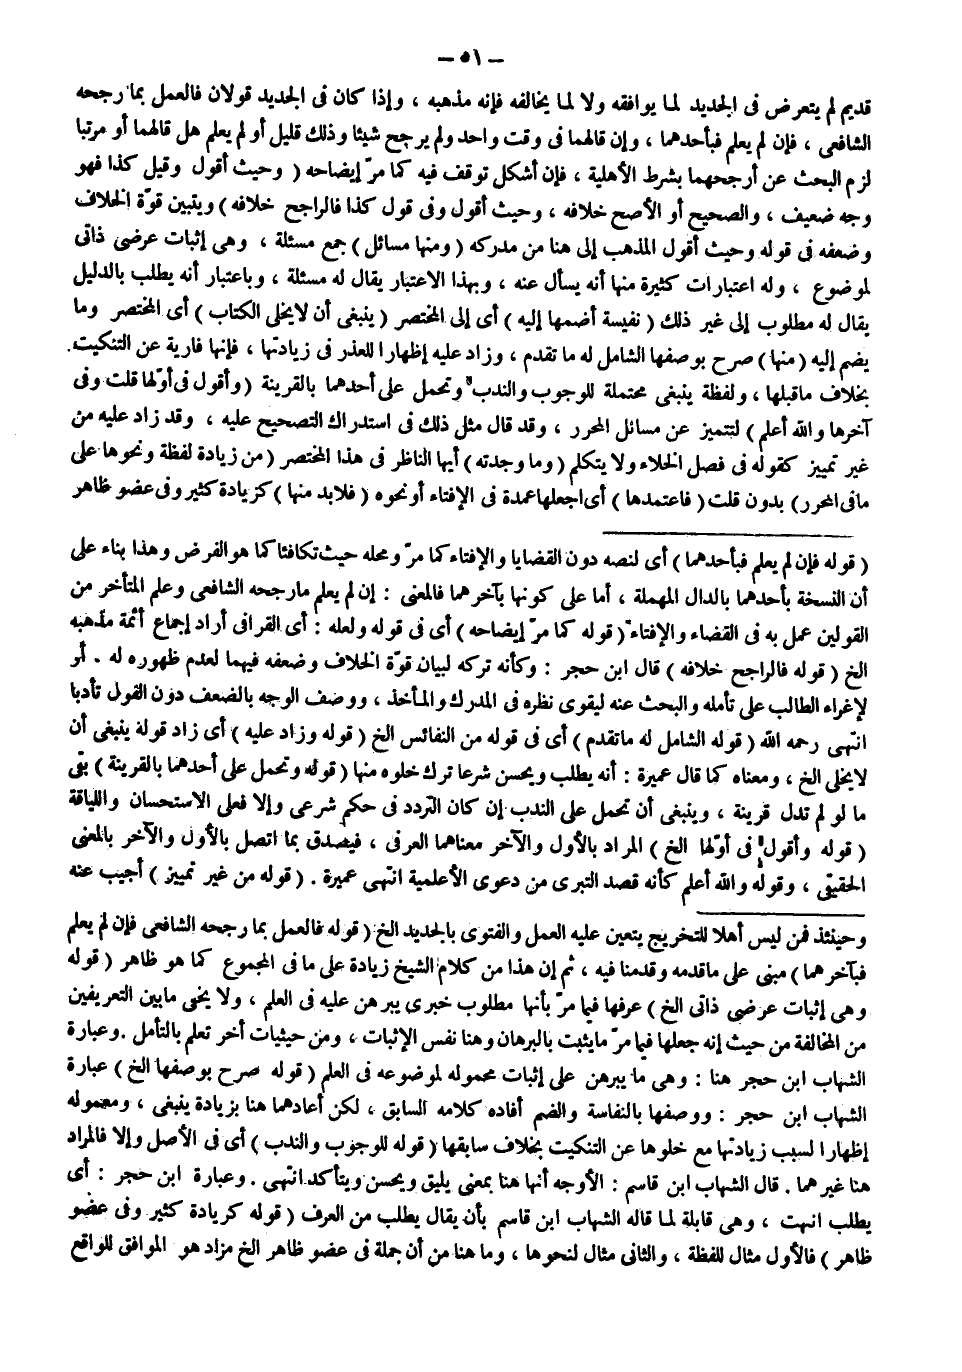 — ٥١ —
قديم لم يتعرض فى الجديد لما يوافقه ولا لما يخالفه فإنه مذهبه ، وإذا كان فى الجديد قولان فالعمل بما رجحه
الشافعى ، فإن لم يعلم فبأحدهما ، وإن قالهما فى وقت واحد ولم يرجح شيئا وذلك قليل أو لم يعلم هل قالهما أو مرتبا
لزم البحث عن أرجحهما بشرط الأهلية ، فإن أشكل توقف فيه كما مرّ إيضاحه ( وحيث أقول وقيل كذا فهو
وجه ضعيف ، والصحيح أو الأصح خلافه ، وحيث أقول وفى قول كذا فالراجح خلافه ) ويتبين قوّة الخلاف
وضعفه فى قوله وحيث أقول المذهب إلى هنا من مدركه ( ومنها مسائل ) جمع مسئلة ، وهى إثبات عرضى ذاتى
لموضوع ، وله اعتبارات كثيرة منها أنه يسأل عنه ، وبهذا الاعتبار يقال له مسئلة ، وباعتبار أنه يطلب بالدليل
يقال له مطلوب إلى غير ذلك ( نفيسة أضمها إليه ) أى إلى المختصر ( ينبغى أن لايخلى الكتاب ) أى المختصر وما
يضم إليه ( منها ) صرح بوصفها الشامل له ما تقدم ، وزاد عليه إظهارا للعذر فى زيادتها ، فإنها فارية عن التنكيت.
بخلاف ماقبلها ، ولفظة ينبغى محتملة للوجوب والندب وتحمل على أحدهما بالقرينة ( وأقول فى أوّلها قلت وفى
آخرها والله أعلم ) لتتميز عن مسائل المحرر ، وقد قال مثل ذلك فى استدراك التصحيح عليه ، وقد زاد عليه من
غير تمييز كقوله فى فصل الخلاء ولا يتكلم ( وما وجدته ) أيها الناظر فى هذا المختصر ( من زيادة لفظة ونحوها على
مافى المحرر ) بدون قلت ( فاعتمدها ) أى اجعلها عمدة فى الإفتاء أونحوه ( فلابد منها ) كزيادة كثير وفى عضو ظاهر
( قوله فإن لم يعلم فبأحدهما ) أى لنصه دون القضايا والإفتاء كما مرّ ومحله حيث تكافئا كما هو الفرض وهذا بناء على
أن النسخة بأحدهما بالدال المهملة ، أما على كونها بآخرهما فالمعنى : إن لم يعلم مارجحه الشافعى وعلم المتأخر من
القولين عمل به فى القضاء والإفتاء ( قوله كما مرّ إيضاحه ) أى فى قوله ولعله : أى القرافى أراد إجماع أئمة مذهبه
الخ ( قوله فالراجح خلافه ) قال ابن حجر : وكأنه تركه لبيان قوّة الخلاف وضعفه فيهما لعدم ظهوره له . أو
لإغراء الطالب على تأمله والبحث عنه ليقوى نظره فى المدرك والمأخذ ، ووصف الوجه بالضعف دون القول تأدبا
انتهى رحمه الله ( قوله الشامل له ماتقدم ) أى فى قوله من النفائس الخ ( قوله وزاد عليه ) أى زاد قوله ينبغى أن
لايخلى الخ ، ومعناه كما قال عميرة : أنه يطلب ويحسن شرعا ترك خلوه منها ( قوله وتحمل على أحدهما بالقرينة ) بقى
ما لو لم تدل قرينة ، وينبغى أن تحمل على الندب إن كان التردد فى حكم شرعى وإلا فعلى الاستحسان واللياقة
( قوله وأقول فى أوّلها الخ ) المراد بالأول والآخر معناهما العرفى ، فيصدق بما اتصل بالأول والآخر بالمعنى
الحقيقى ، وقوله والله أعلم كأنه قصد التبرى من دعوى الأعلمية انتهى عميرة . ( قوله من غير تمييز ) أجيب عنه
وحينئذ فمن ليس أهلا للتخريج يتعين عليه العمل والفتوى بالجديد الخ ( قوله فالعمل بما رجحه الشافعى فإن لم يعلم
فبآخرهما ) مبنى على ماقدمه وقدمنا فيه ، ثم إن هذا من كلام الشيخ زيادة على ما فى المجموع كما هو ظاهر ( قوله
وهى إثبات عرضى ذاتى الخ ) عرفها فيما مرّ بأنها مطلوب خبرى يبرهن عليه فى العلم ، ولا يخفى مابين التعريفين
من المخالفة من حيث إنه جعلها فيما مرّ مايثبت بالبرهان وهنا نفس الإثبات ، ومن حيثيات أخر تعلم بالتأمل . وعبارة
الشهاب ابن حجر هنا : وهى ما يبرهن على إثبات محموله لموضوعه فى العلم ( قوله صرح بوصفها الخ ) عبارة
الشهاب ابن حجر : ووصفها بالنفاسة والضم أفاده كلامه السابق ، لكن أعادهما هنا بزيادة ينبغى ، ومعموله
إظهارا لسبب زيادتها مع خلوها عن التنكيت بخلاف سابقها ( قوله للوجوب والندب ) أى فى الأصل وإلا فالمراد
هنا غيرهما . قال الشهاب ابن قاسم : الأوجه أنها هنا بمعنى يليق ويحسن ويتأكد انتهى . وعبارة ابن حجر : أى
يطلب انهت ، وهى قابلة لما قاله الشهاب ابن قاسم بأن يقال يطلب من العرف ( قوله كزيادة كثير وفى عضو
ظاهر ) فالأول مثال للفظة ، والثانى مثال لنحوها ، وما هنا من أن جملة فى عضو ظاهر الخ مزاد هو الموافق للواقع